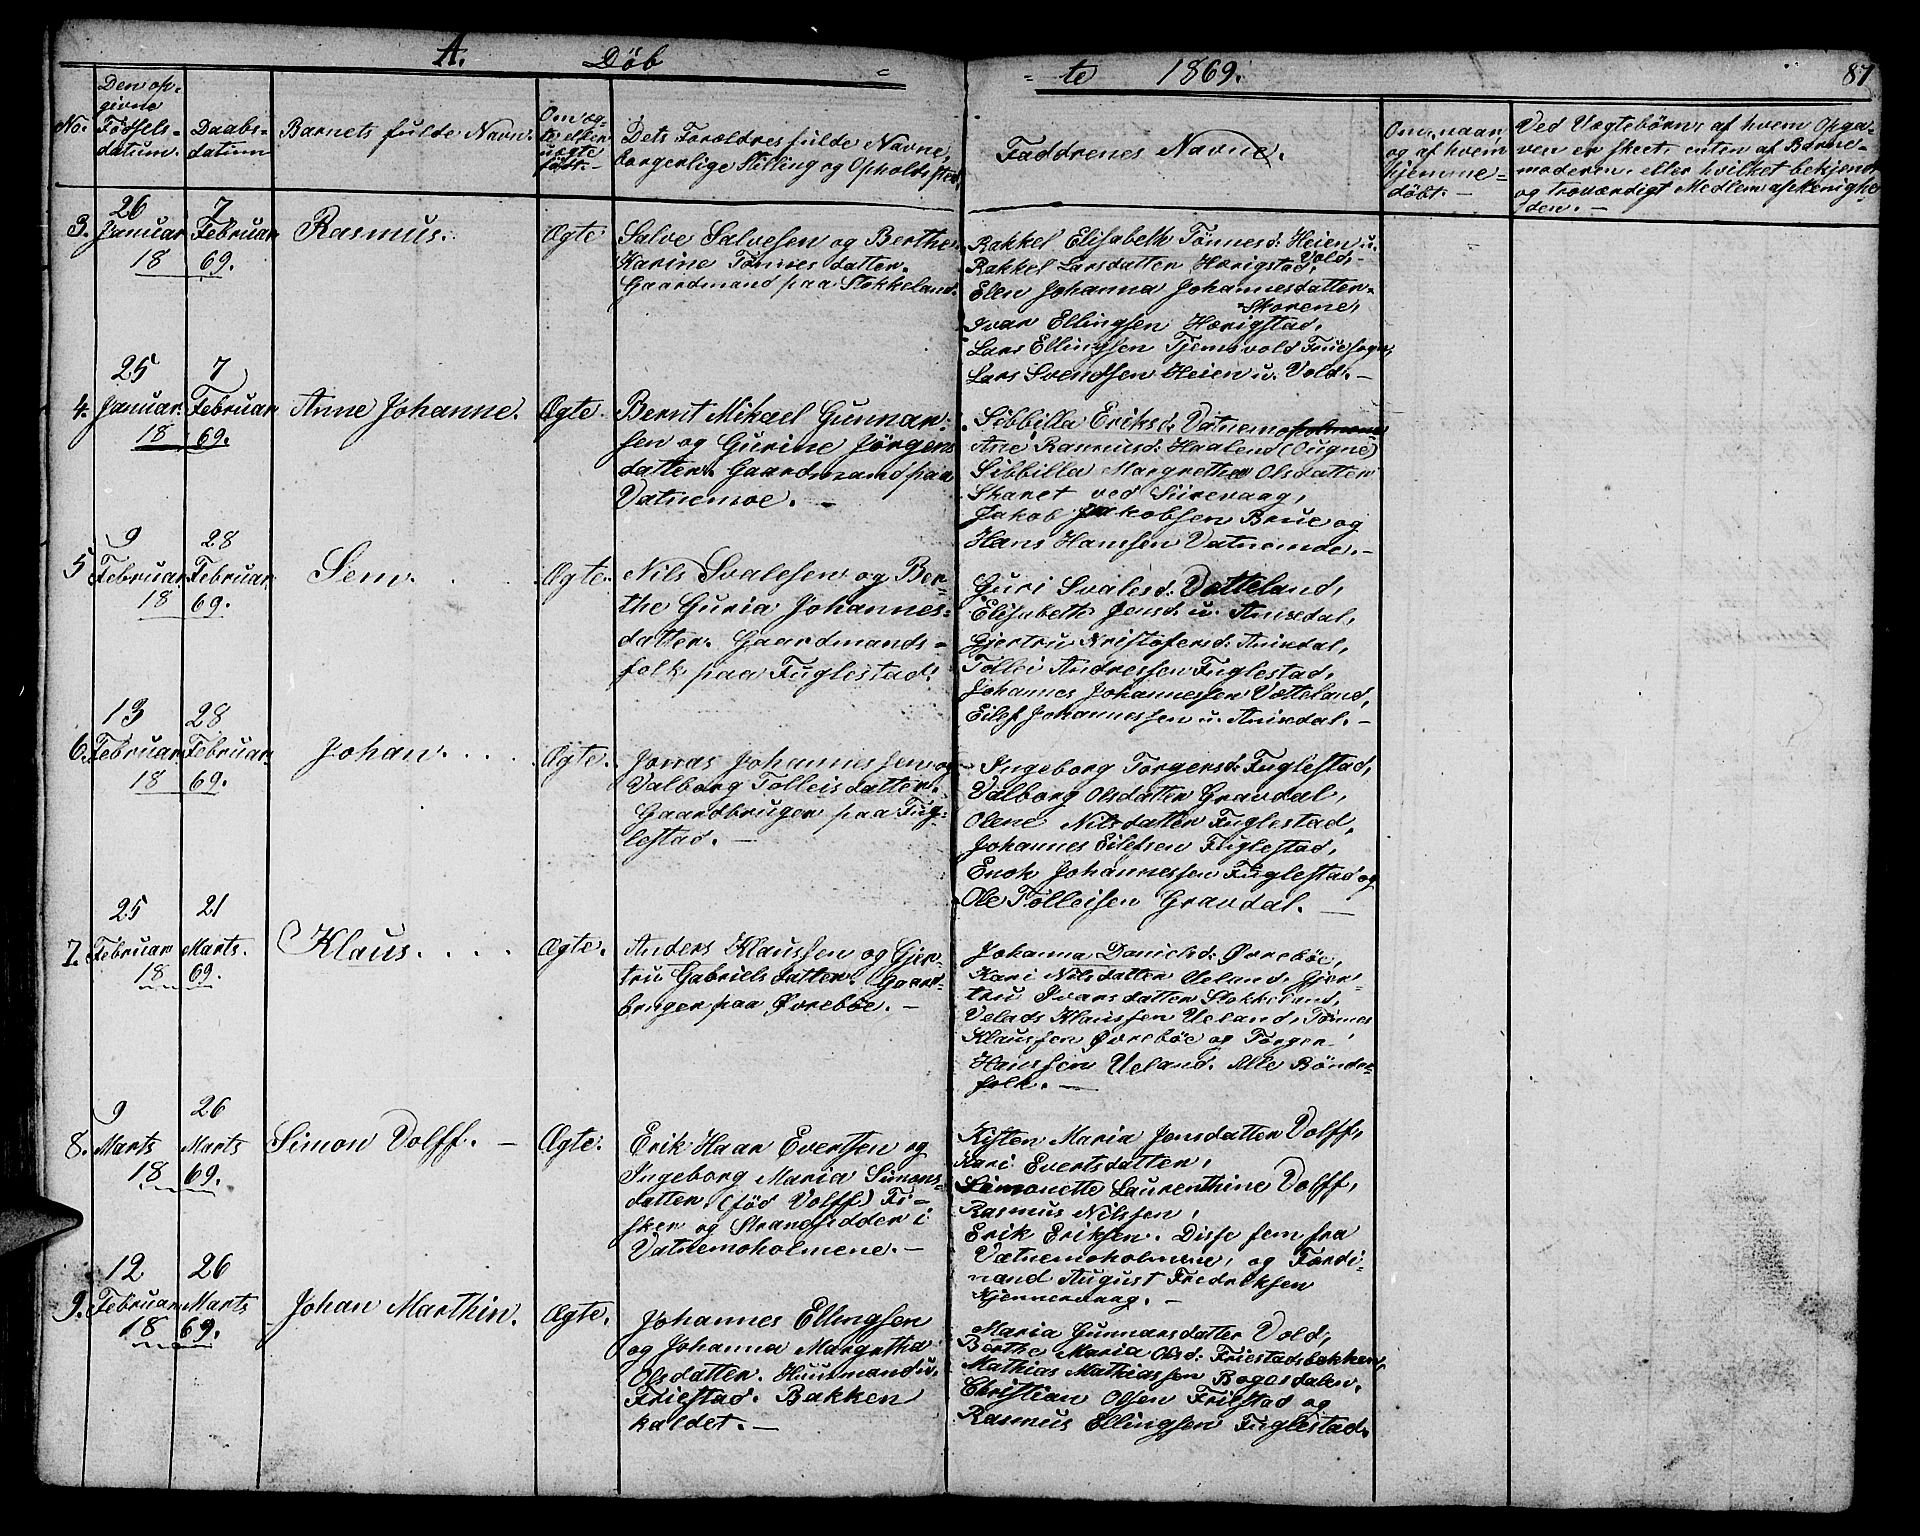 A.
Döb = = te 1869. 87
No.
Den op-
givne
Födsels-
datum.
Daabs-
datum
Barnets fulde Navn.
Om æg-
te eller
uægte
födt. -
Dets Forældres fulde Navne,
borgerlige Stilling og Opholdssted.
Faddrenes Navne.
Om, naar,
og af hvem
hjemme=
döbt. -
Ved Uægtebörn: af hvem Opga-
ven er skeet, enten af Barne-
moderen, eller hvilket bekjendt
og troværdigt Medlem af Menighe-
den. -
3.
26
Januar
18
7
Februar
69.
Rasmus.
Ægte
Salve Salvesen og Berthe
Karine Tönnesdatter.
Gaardmand paa Stokkeland.
Rakkel Elisabeth Tönnesd: Heien u.
Vold,
Rakkel Larsdatter Hærigstad,
Elen Johanna Johannesdatter
Skorene,
Ivar Ellingsen Hærigstad,
Lars Ellingsen Tjemsvold Fruesogn,
Lars Svendsen Heien u. Vold. -
4.
25
Januar.
18
7
Februar
69.
Anne Johanne.
Ægte.
Bernt Mikael Gunnar-
sen og Gurine Jörgens
datter. Gaardmand paa
Vatnemoe. -
Sibbilla Eriksd: Vatnemoholmene
Ane Rasmusd: Haaland (Ougne)
Sibbilla Margrethe Olsdatter
Skaret ved Sirevaag,
Jakob Jakobsen Brue og
Hans Hansen Vatnemoe. -
5
9
Februar
18
28
Februar
69.
Sem.
Ægte.
Nils Svalesen og Ber-
the Guria Johannes-
datter. Gaardmands-
folk paa Fuglestad.
Guri Svalesd: Vatteland,
Elisabeth Jensd. u. Anisdal,
Gjertru Kristofersd: Anisdal,
Tollei Andressen Fuglestad,
Johannes Johannessen Vatteland,
Eilef Johannessen u. Anisdal. -
6.
13
Februar
18
28
Februar
69.
Johan.
Ægte.
Jonas Johannessen og
Valborg Tolleisdatter.
Gaardbruger paa Fug-
lestad. -
Ingeborg Torgersd: Fuglestad,
Valborg Olsdatter Gravdal,
Olene Nilsdatter Fuglestad,
Johannes Eilefsen Fuglestad,
Enok Johannessen Fuglestad og
Ole Tolleisen Gravdal. -
7.
25
Februar
18
21
Marts.
69.
Klaus.
Ægte.
Anders Klaussen og Gjer-
tru Gabrielsdatter. Gaard-
bruger paa Övreböe. -
Johanna Danielsd: Övreböe,
Kari Nilsdatter Ueland, Gjer-
tru Ivarsdatter Stokkeland,
Velads Klaussen Ueland, Tönnes
Klaussen Övreböe og Torger
Hanssen Ueland. Alle Bönder-
folk. -
8.
9
Marts
18
26
Marts
69.
Simon Volff. -
Ægte.
Erik Haar Evertsen og
Ingeborg Maria Simons-
datter (föd Volff) Fi-
sker og Strandsidder i
Vatnemoholmene. -
Kisten Maria Jonsdatter Volff,
Kari Evertsdatter,
Simonette Laurenthine Volff,
Rasmus Nilssen,
Erik Eriksen. Disse fem fra
Vatnemoholmene, og Ferdi-
nand August Fredriksen
Kjennervaag. -
9.
12
Februar
18
26
Marts
69.
Johan Marthin.
Ægte.
Johannes Ellingsen
og Johanna Margretha
Olsdatter. Huusmand u.
Friestad. Bakken
kaldet. -
Maria Gunnarsdatter Vold,
Berthe Maria Olsd: Friestadsbakken,
Mathias Mathiassen Bogesdalen,
Christian Olsen Friestad og
Rasmus Ellingsen Fuglestad.